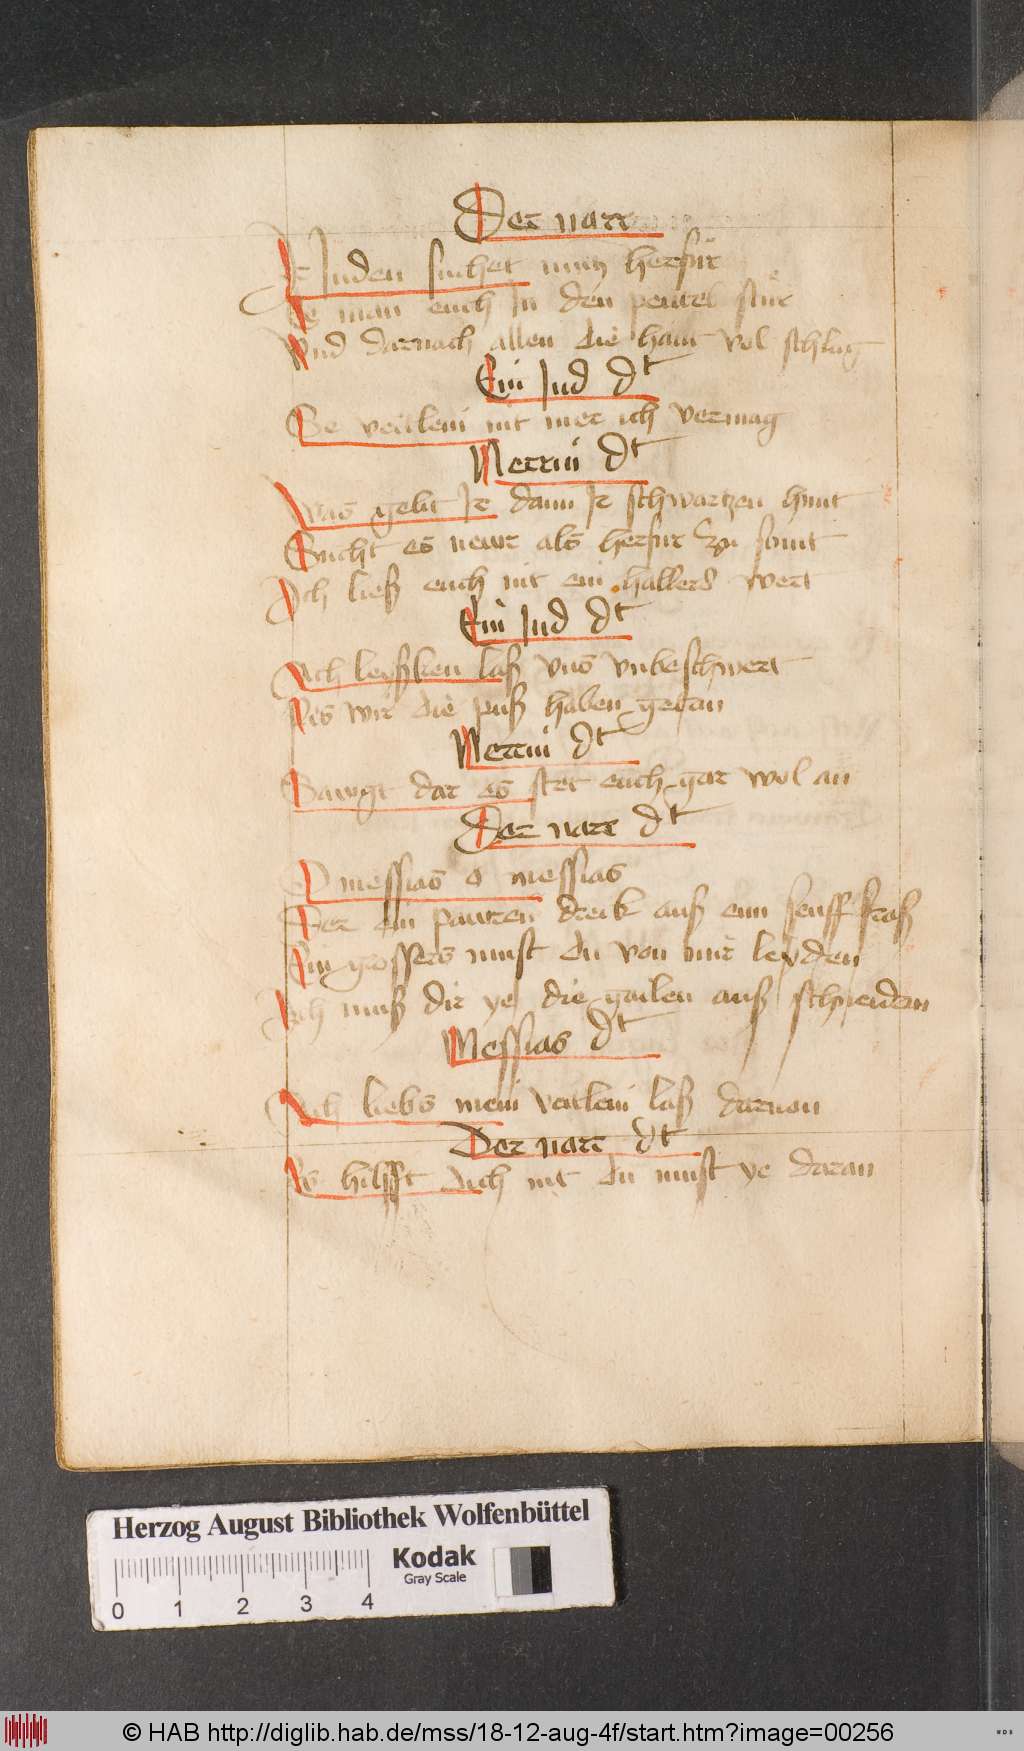 Der narr
Ir Juden suchet mirs herfür
Ee man euch In den peutel stür
Vnd darnach allen die haut vol schlug
Ein Jud dt
Se veitlein nit mer ich vermag
Merrin dt
Was gebt Ir dann Ir schwartzen hunt
Sucht es newr als herfur zu stunt
Ich ließ euch nit ein hallers wert
Ein Jud dt
Ach laß vns vnbeschwert
Bis wir die puß haben getan
Merrin dt
Sawgt dar es stet euch gar wol an
Der narr dt
O messias o messias
Der ein pawren dreck auß eim senff fraß
Ein grossers must du von mir leyden
Ich muß dir ye die gailen auß schneiden
Messias dt
Ach liebs mein veitlein laß daruon
Der narr dt
Es hilfft dich nit du must ye daran
Herzog August Bibliothek Wolfenbüttel
Kodak
Gray Scale
0 1 2 3 4
© HAB http://diglib.hab.de/mss/18-12-aug-4f/start.htm?image=00256
WDB